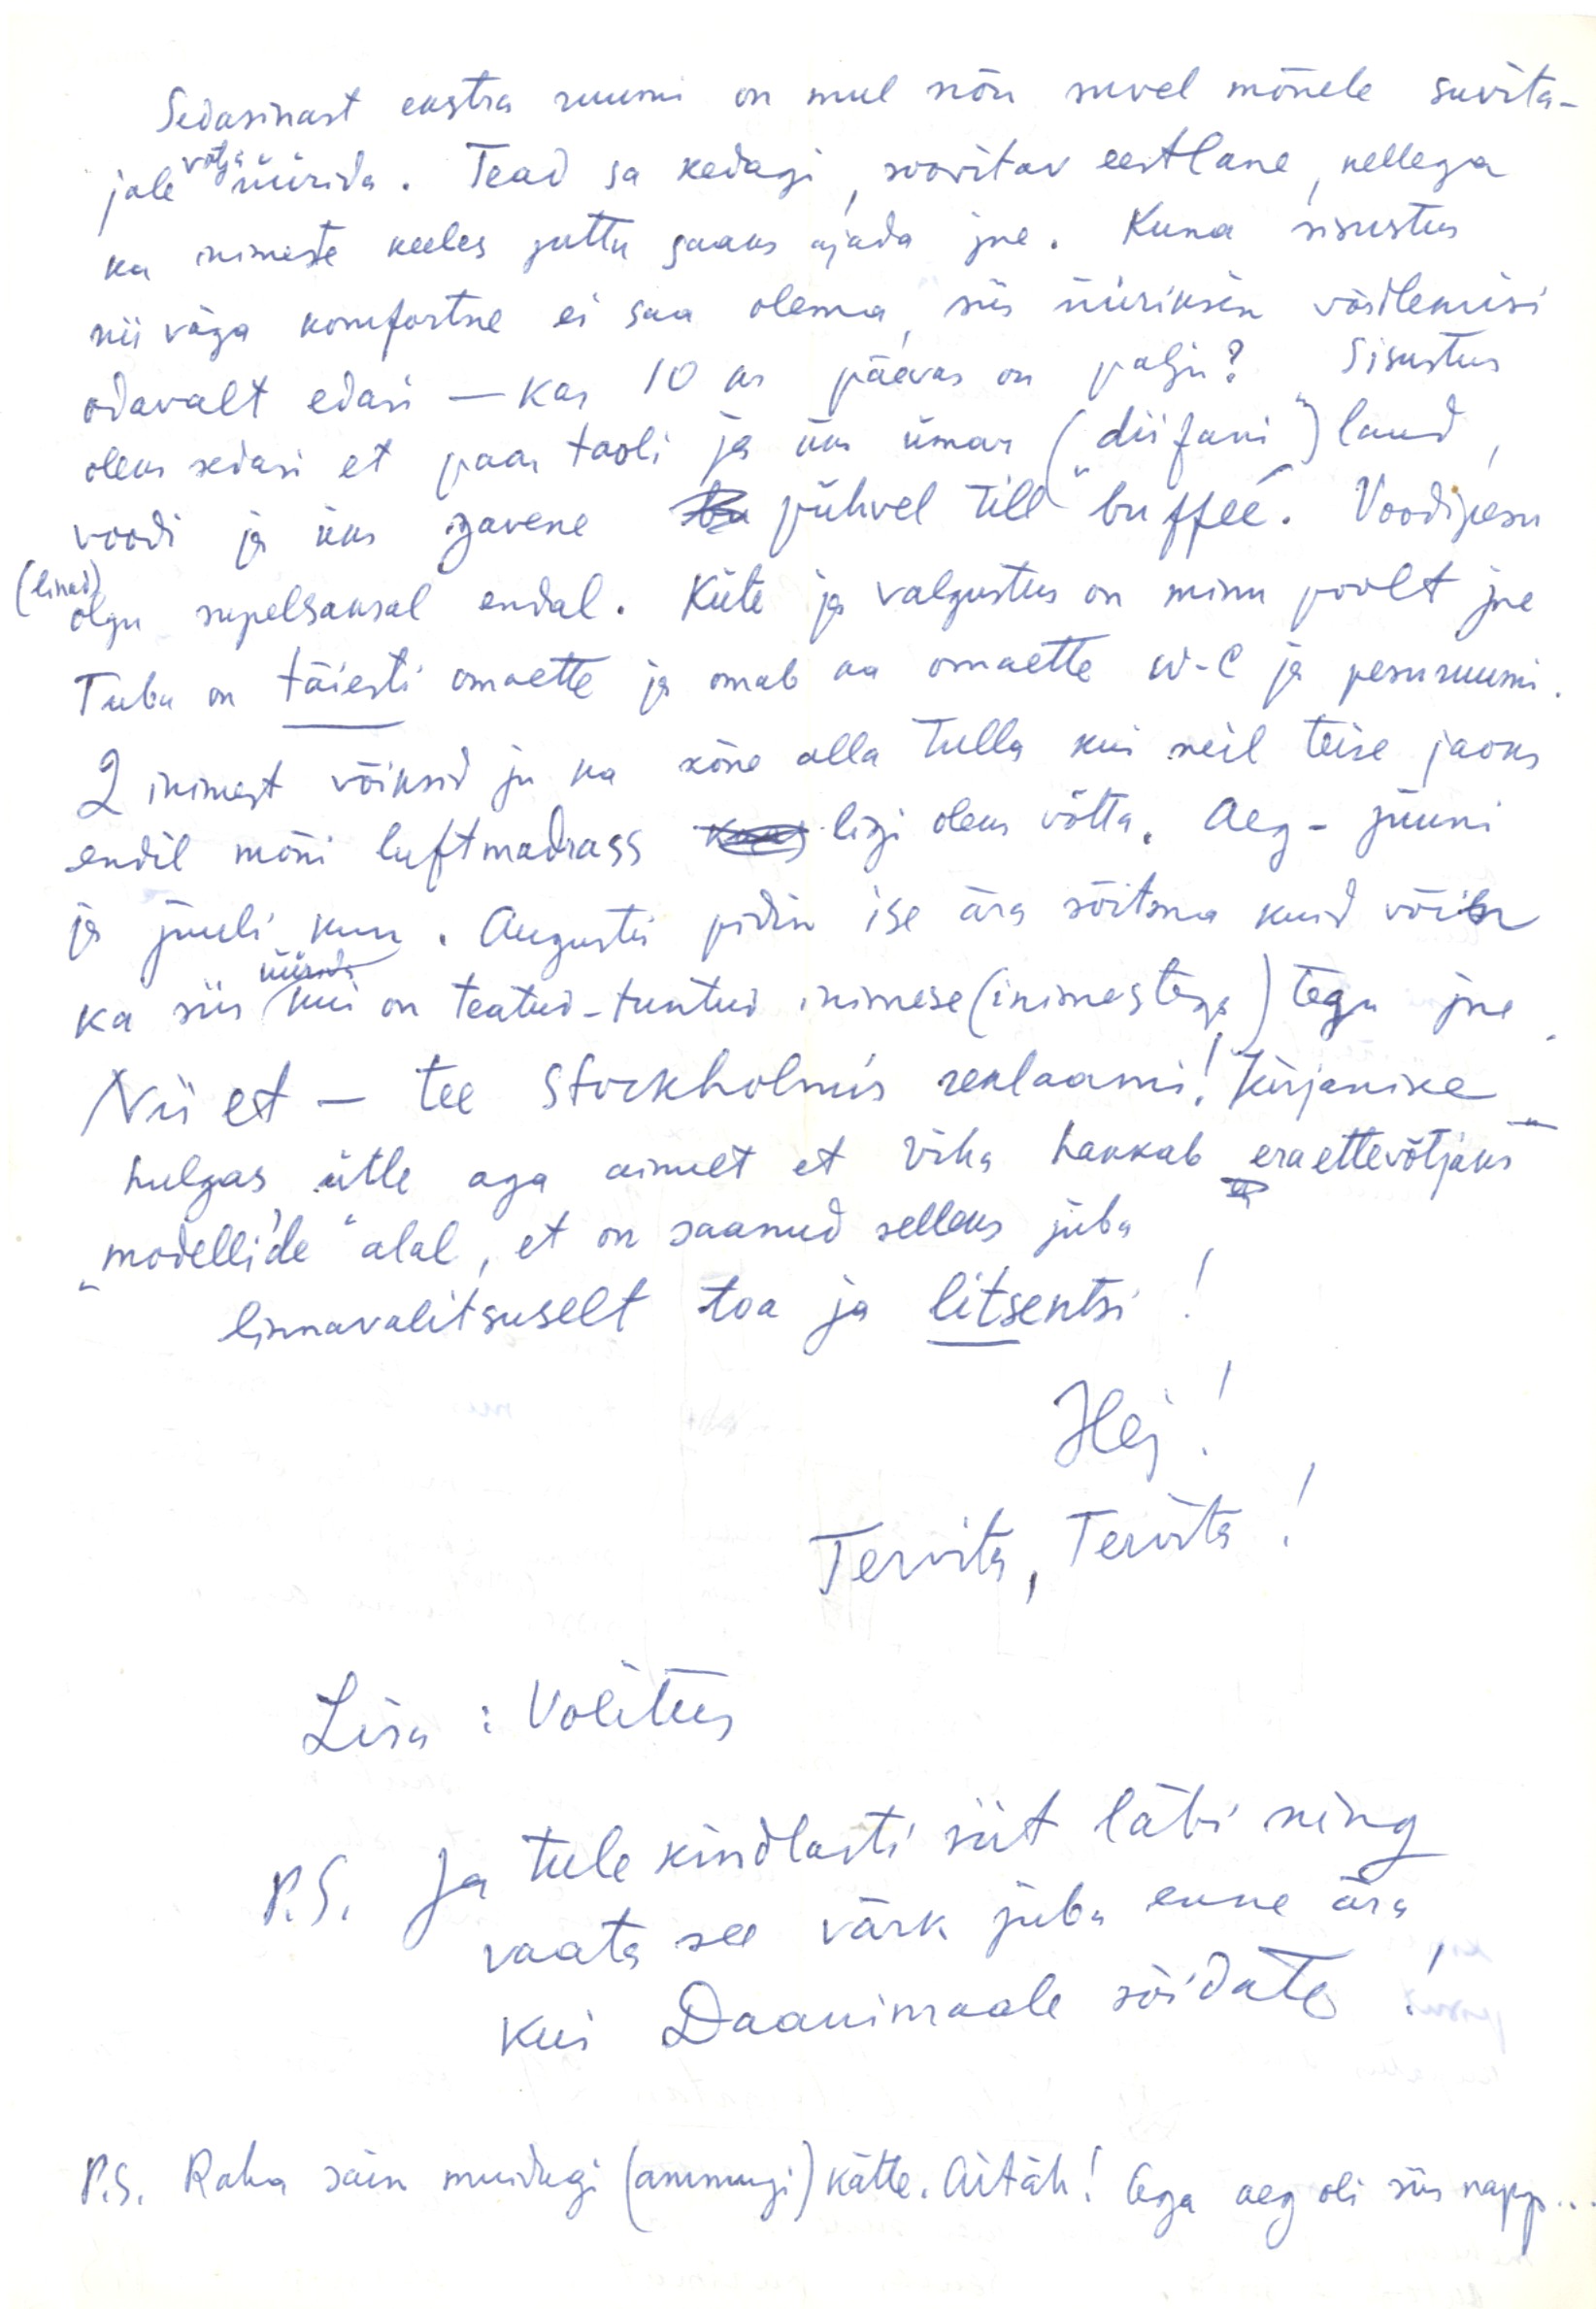 Sedasinast ekstra ruumi on mul nõu suvel mõnele suvita-
jale välja üürida. Tead sa kedagi, soovitav eestlane, kellega
ka inimeste keeles juttu saaks ajada jne. Kuna sisustus
nii väga komfortne ei saa olema, siis üüriksin võrdlemisi
odavalt edasi — kas 10 kr päevas on palju? Sisustus
oleks sedasi et paar tooli ja üks ümar („diifani") laud,
voodi ja üks pühvel till „buffeé". Voodipesu
(linad) olgu supelsaksal endal. Küte ja valgustus on minu poolt jne
Tuba on täiesti omaette ja omab ka omaette W-C ja pesuruumi.
2 inimest võiksid ju ka kõne alla tulla kui neil teise jaoks
endil mõni luftmadrass ligi oleks võtta. Aeg - juuni
ja juuli kuu. Augustis pidin ise ära sõitma kuid võin
ka siis üürida kui on teatud-tuntud inimese (inimestega) tegu jne.
Nii et — tee Stockholmis reklaami! Kirjanike
hulgas ütle aga ainult et Viha hakkab „eraettevõtjaks"
„modellide" alal, et on saanud selleks juba
linnavalitsuselt toa ja litsentsi!
Hej!
Tervita, Tervita!
Lisa: Volitus
P.S. Ja tule kindlasti siit läbi ning
vaata see värk juba enne ära
kui Daanimaale sõidate!
P.S. Raha sain muidugi (ammugi) kätte. Aitäh! Ega aeg oli siis napp...